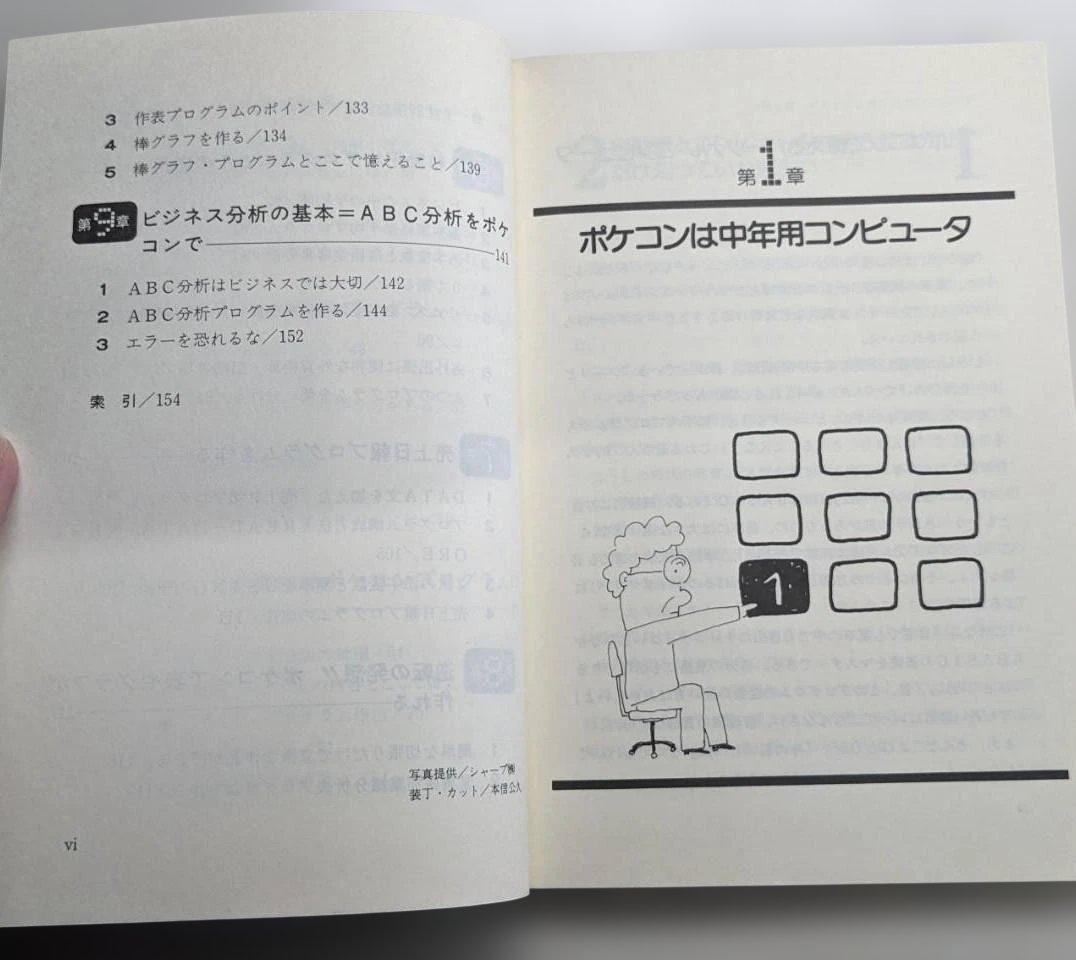 3 作表プログラムのポイント/133
4 棒グラフを作る/134
5 棒グラフ・プログラムとここで憶えること/139
第9章 ビジネス分析の基本=ABC分析をポケ
コンで――141
1 ABC分析はビジネスでは大切/142
2 ABC分析プログラムを作る/144
3 エラーを恐れるな/152
索 引/154
写真提供/シャープ㈱
装丁・カット/本信公久
vi
第1章
ポケコンは中年用コンピュータ
1